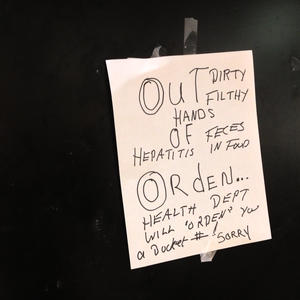 OUT DIRTY
FILTHY
HANDS
OF FECES
HEPATITIS IN FOOD
ORDEN...
HEALTH DEPT
WILL "ORDEN" YOU
a Docket # !
SORRY